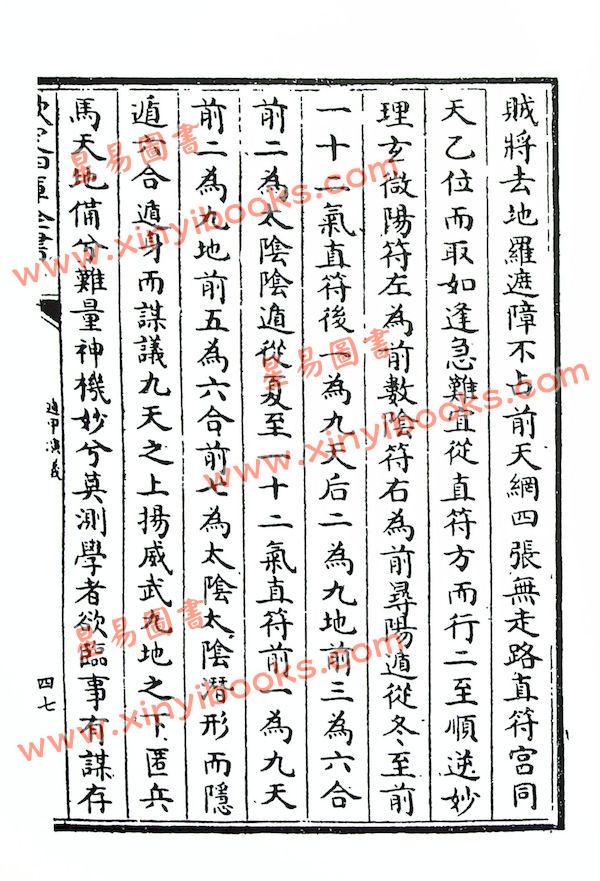 賊將去地羅遮障不占前天網四張無走路直符宮同
天乙位而取如逢急難宜從直符方而行二至順逆妙
理玄微陽符左為前數陰符右為前尋陽遁從冬至前
一十二氣直符後一為九天后二為九地前三為六合
前二為太陰陰遁從夏至一十二氣直符前一為九天
前二為九地前五為六合前七為太陰太陰潛形而隱
遁六合遁身而謀議九天之上揚威武九地之下匿兵
馬天地備兮難量神機妙兮莫測學者欲臨事有謀存
遁甲演義
四七
昜易圖書
www.xinyibooks.com
昜易圖書
www.xinyibooks.com
昜易圖書
www.xinyibooks.com